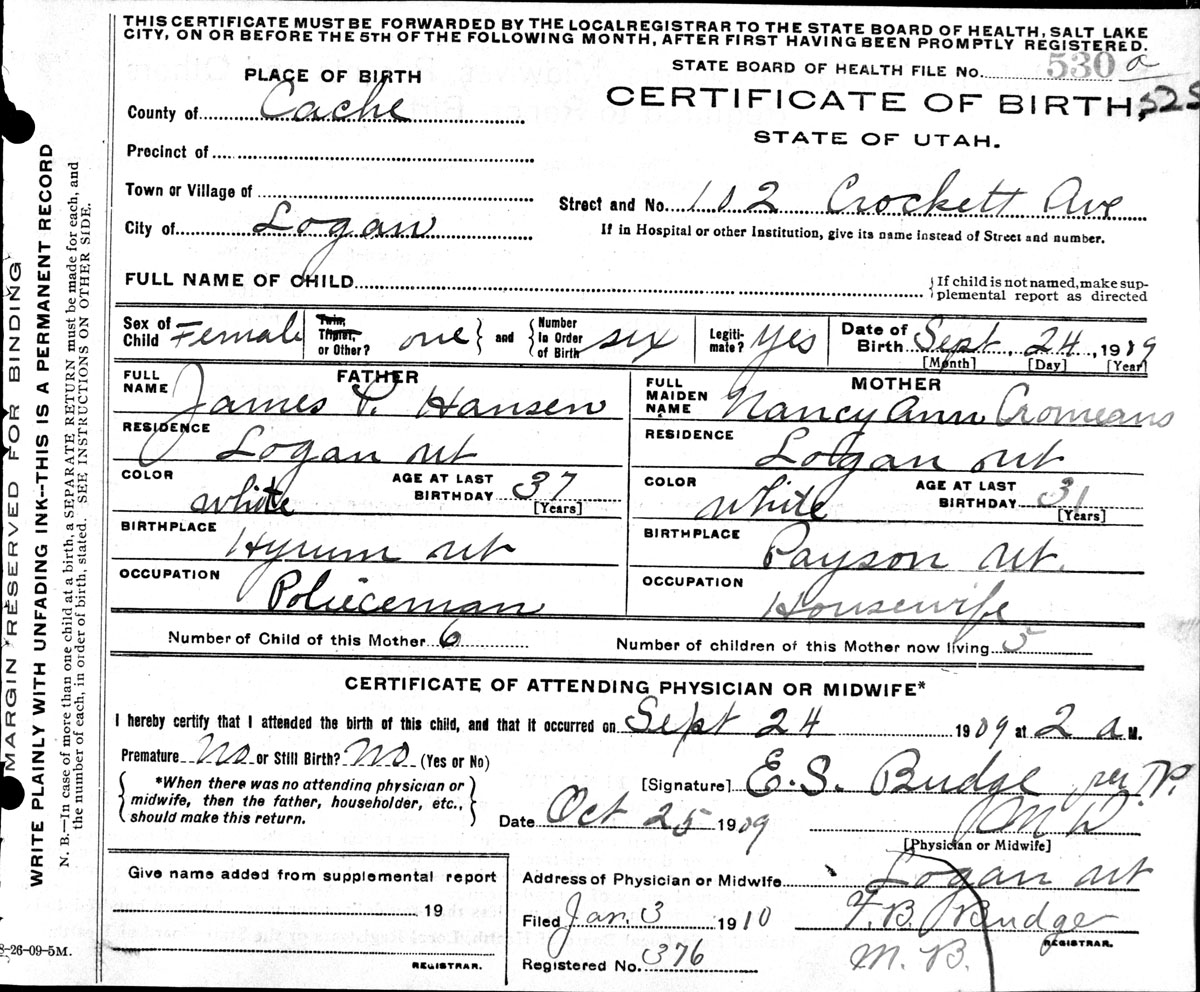 THIS CERTIFICATE MUST BE FORWARDED BY THE LOCAL REGISTRAR TO THE STATE BOARD OF HEALTH, SALT LAKE
CITY, ON OR BEFORE THE 5TH OF THE FOLLOWING MONTH, AFTER FIRST HAVING BEEN PROMPTLY REGISTERED.
STATE BOARD OF HEALTH FILE No. 530 a
PLACE OF BIRTH
CERTIFICATE OF BIRTH,
STATE OF UTAH.
County of Cache
Precinct of
Town or Village of
City of Logan
Street and No. 102 Crockett Ave
If in Hospital or other Institution, give its name instead of Street and number.
FULL NAME OF CHILD
If child is not named, make sup-
plemental report as directed
Sex of Child Female
Twin, Triplet, or Other? one and Number in Order of Birth six
Legiti-mate? yes
Date of Birth Sept. 24, 1909
[Month] [Day] [Year]
FATHER
FULL NAME James P. Hansen
RESIDENCE Logan ut
COLOR white
AGE AT LAST BIRTHDAY 37 [Years]
BIRTHPLACE Hyrum ut
OCCUPATION Policeman
MOTHER
FULL MAIDEN NAME Nancy Ann Cromeans
RESIDENCE Logan ut
COLOR white
AGE AT LAST BIRTHDAY 31 [Years]
BIRTHPLACE Payson ut.
OCCUPATION Housewife
Number of Child of this Mother 6
Number of children of this Mother now living 5
CERTIFICATE OF ATTENDING PHYSICIAN OR MIDWIFE*
I hereby certify that I attended the birth of this child, and that it occurred on Sept 24 1909 at 2 a M.
Premature No or Still Birth? No (Yes or No)
*When there was no attending physician or
midwife, then the father, householder, etc.,
should make this return.
[Signature] E. S. Budge per T.P.
M D
Date Oct 25 1909
[Physician or Midwife]
Give name added from supplemental report
19
REGISTRAR.
Address of Physician or Midwife Logan ut
Filed Jan. 3 1910 F. B. Budge
REGISTRAR.
M. B.
Registered No. 376
MARGIN RESERVED FOR BINDING
WRITE PLAINLY WITH UNFADING INK--THIS IS A PERMANENT RECORD
N. B.—In case of more than one child at a birth, a SEPARATE RETURN must be made for each, and
the number of each, in order of birth, stated. SEE INSTRUCTIONS ON OTHER SIDE.
8-26-09-5M.